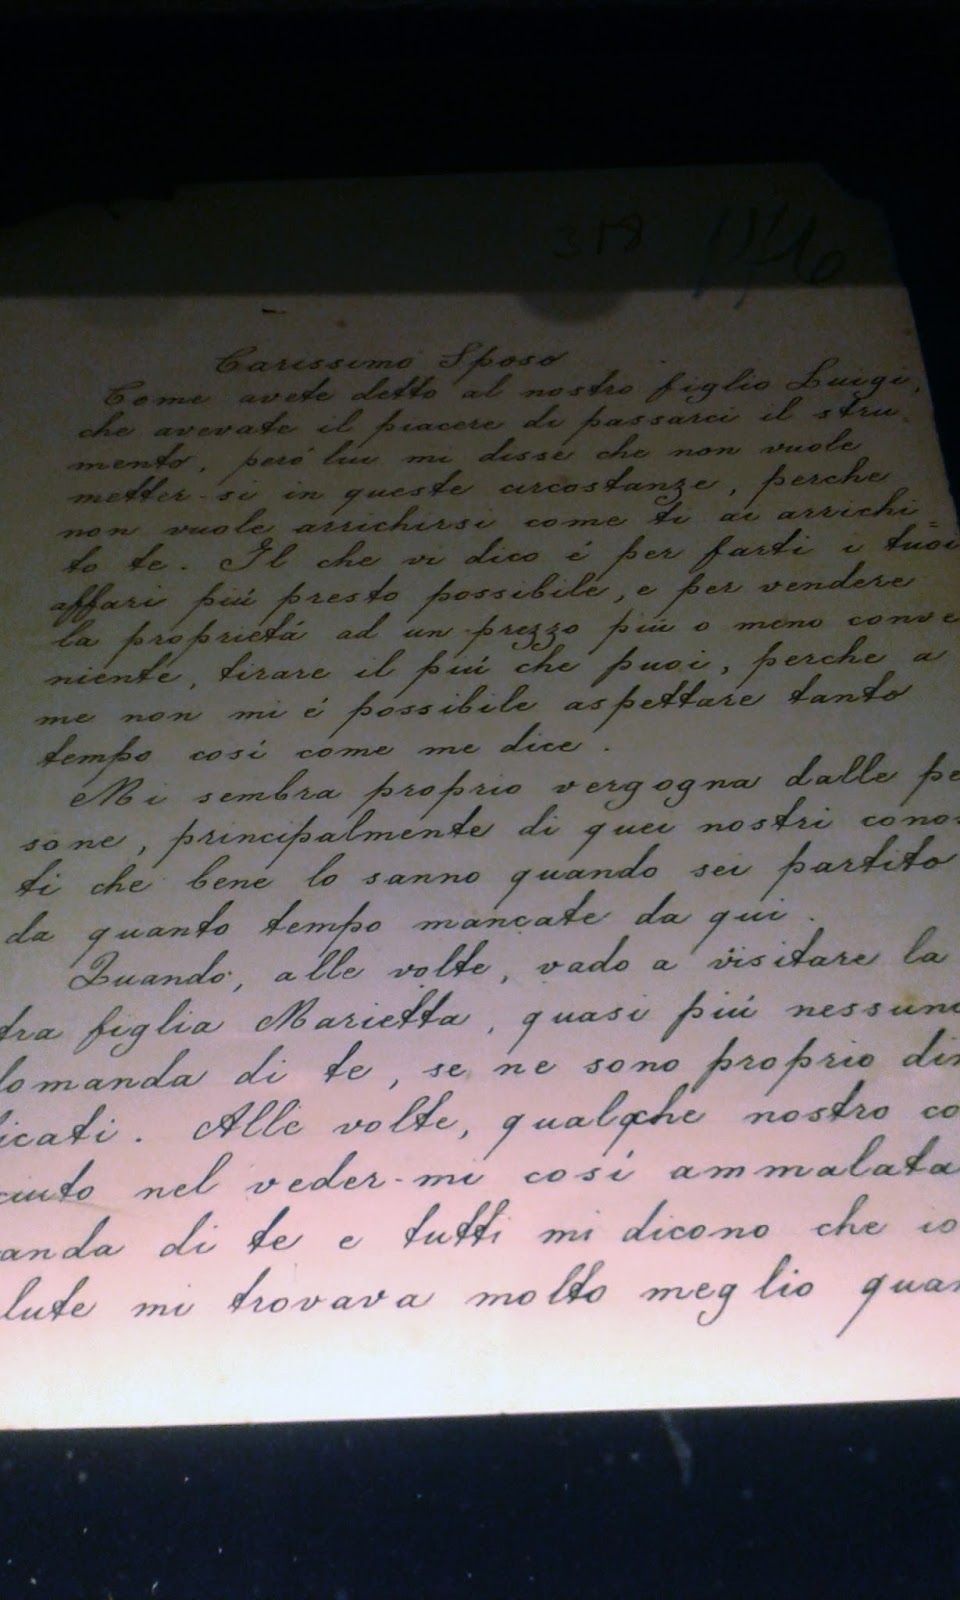 318
Carissimo Sposo
Come avete detto al nostro figlio Luigi,
che avevate il piacere di passarci il stru-
mento, peró lui mi disse che non vuole
metter-si in queste circostanze, perche
non vuole arrichirsi come ti ai arrichi=
to te. Il che vi dico é per farti i tuoi
affari piú presto possibile, e per vendere
la proprietá ad un prezzo piú o meno conve
niente, tirare il piú che puoi, perche a
me non mi é possibile aspettare tanto
tempo cosí come me dice.
Mi sembra proprio vergogna dalle pe
sone, principalmente di quei nostri conos
ti che bene lo sanno quando sei partito
da quanto tempo mancate da qui.
Quando, alle volte, vado a visitare la
tra figlia Marietta, quasi piú nessuno
domanda di te, se ne sono proprio dim
icati. Alle volte, qualche nostro co
ciuto nel veder-mi cosí ammalata
anda di te e tutti mi dicono che io
lute mi trovava molto meglio quan